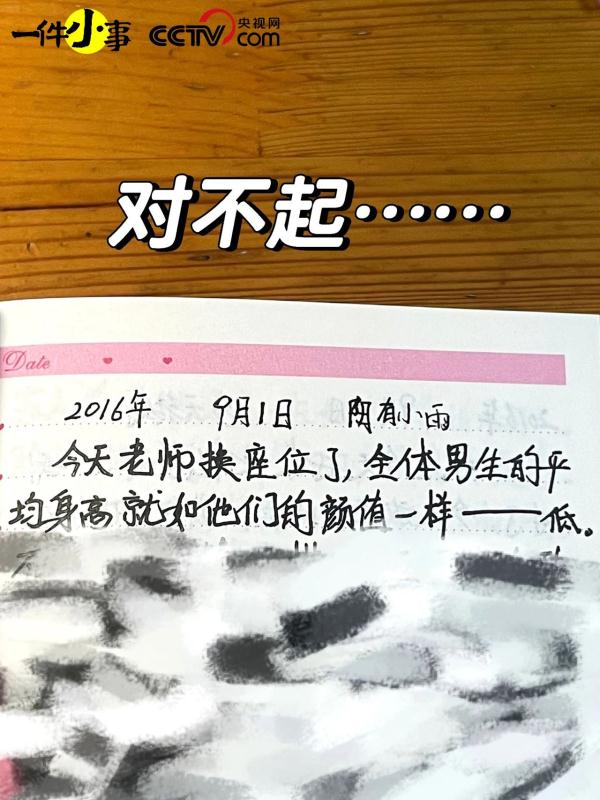 一件小事 CCTV com 央视网
对不起……
Date
2016年 9月1日 阴有小雨
今天老师换座位了,全体男生的平
均身高就如他们的颜值一样——低。